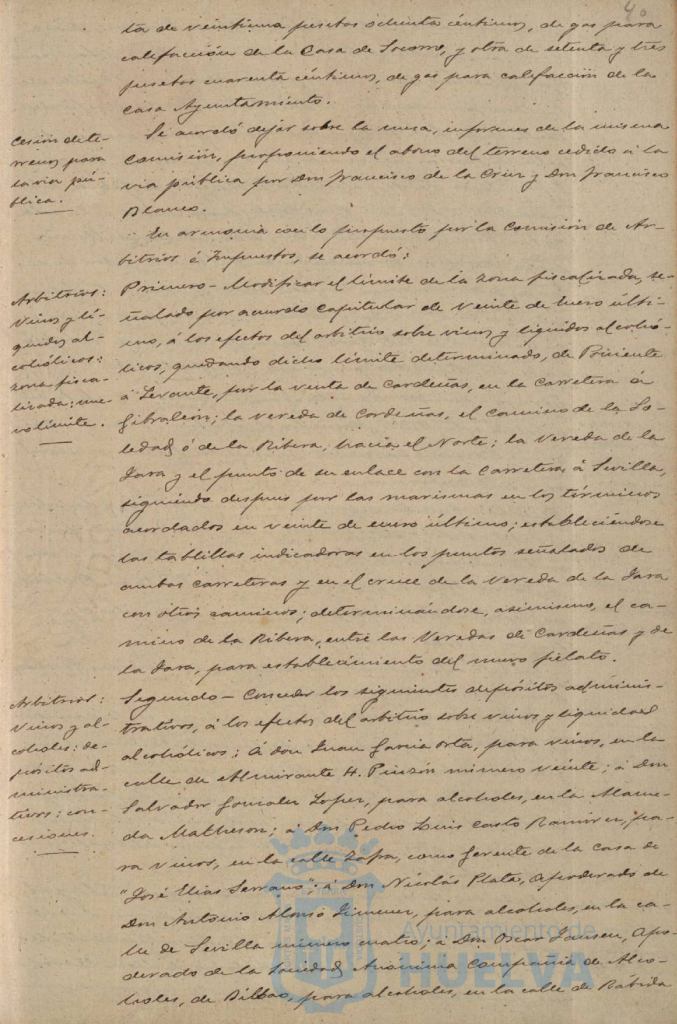 40
ta de veintiuna pesetas ochenta céntimos, de gas para
calefacción de la Casa de Socorro, y otra de setenta y tres
pesetas cuarenta céntimos, de gas para calefacción de la
Casa Ayuntamiento.
Cesión de te-
rrenos para
la via pú-
blica.
Se acordó dejar sobre la mesa, informes de la misma
Comisión, proponiendo el abono del terreno cedido á la
via pública por Don Francisco de la Cruz y Don Francisco
Blanco.
En armonia con lo propuesto por la Comisión de Ar-
bitrios é Impuestos, se acordó:
Arbitrios:
Vinos y lí-
quidos al-
cohólicos:
zona fisca-
lizada: nue-
vo límite.
Primero- Modificar el límite de la zona fiscalizada, se-
ñalado por acuerdo capitular de veinte de Enero últi-
mo, á los efectos del arbitrio sobre vinos y líquidos alcohó-
licos, quedando dicho límite determinado, de Poniente
á Levante, por la venta de Cardeñas, en la Carretera á
Gibraleón; la vereda de Cardeñas, el camino de la So-
ledad ó de la Ribera, hacia el Norte; la Vereda de la
Jara y el punto de su enlace con la Carretera á Sevilla,
siguiendo despues por las marismas en los términos
acordados en veinte de enero último; estableciéndose
las tablillas indicadoras en los puntos señalados de
ambas Carreteras y en el cruce de la Vereda de la Jara
con otros caminos; determinándose, asimismo, el ca-
mino de la Ribera, entre las Veredas de Cardeñas y de
la Jara, para establecimiento del nuevo fielato.
Arbitrios:
Vinos y al-
coholes: de-
pósitos ad-
ministra-
tivos: con-
cesiones.
Segundo- Conceder los siguientes depósitos adminis-
trativos, á los efectos del arbitrio sobre vinos y liquidos
alcohólicos: Á don Juan García Orta, para vinos, en la
calle de Almirante H. Pinzón número veinte; á Don
Salvador Gonzalez Lopez, para alcoholes, en la Alame-
da Matheson; á Don Pedro Luis Casto Ramirez, pa-
ra vinos, en la calle Zafra, como Gerente de la Casa de
"José Elias Serrano"; á Don Nicolás Plata, Apoderado de
Don Antonio Alonso Jimenez, para alcoholes, en la ca-
lle de Sevilla número cuatro; á Don Oscar Jansen, Apo-
derado de la Sociedad Anónima Compañía de Alco-
holes, de Bilbao, para alcoholes, en la calle de Rábida
Ayuntamiento de
HUELVA